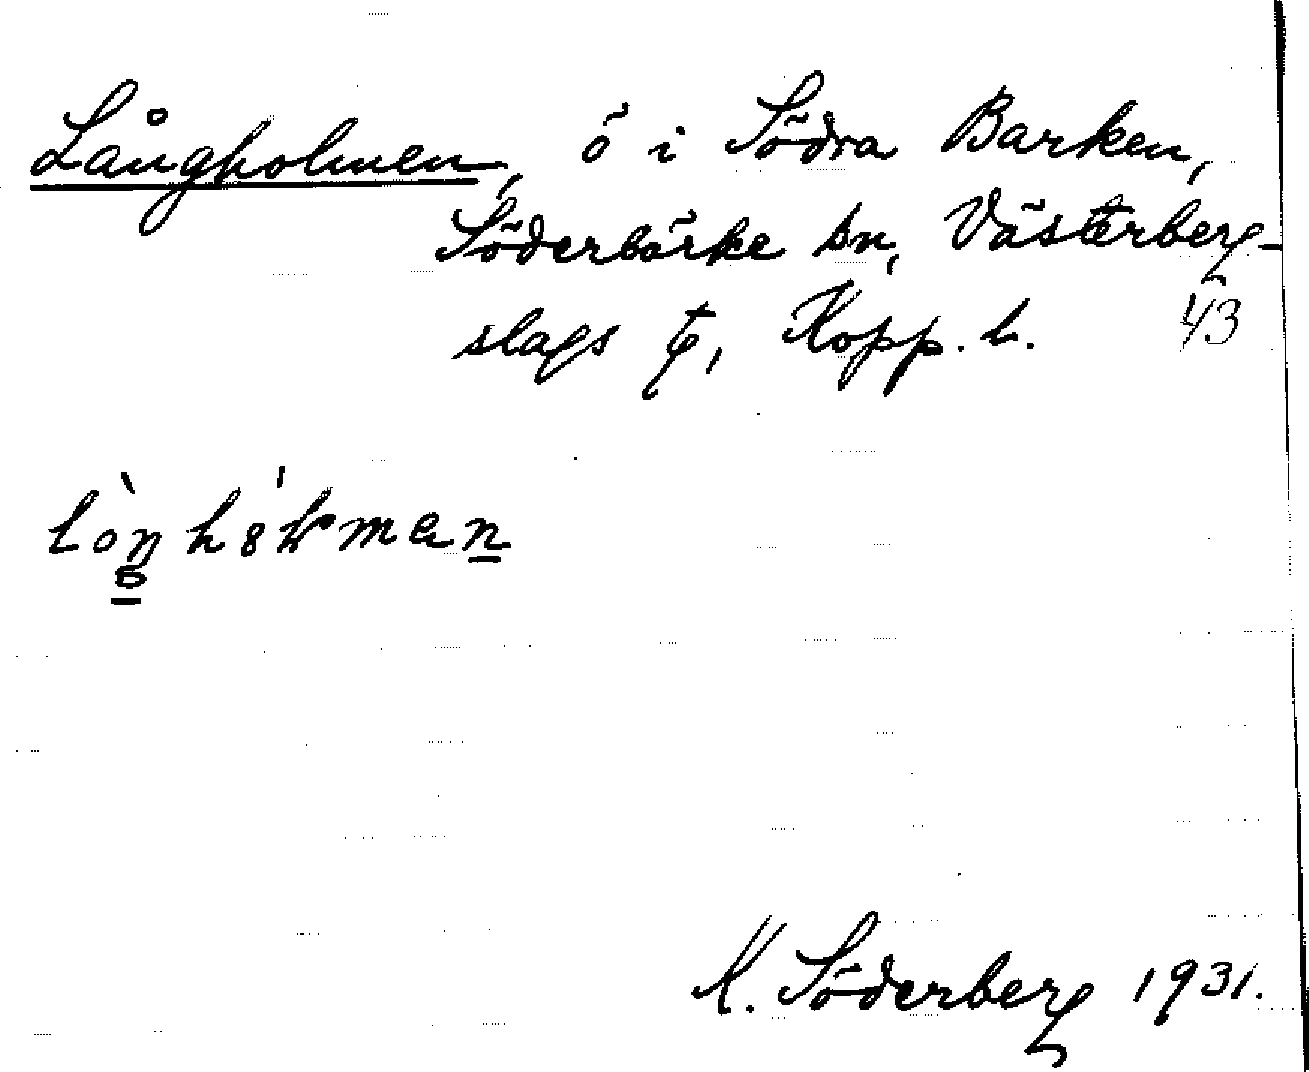 Långholmen, ö i Södra Barken,
Söderbärke sn, Västerberg-
slags tg, Kopp. l. 43
K. Söderberg 1931.